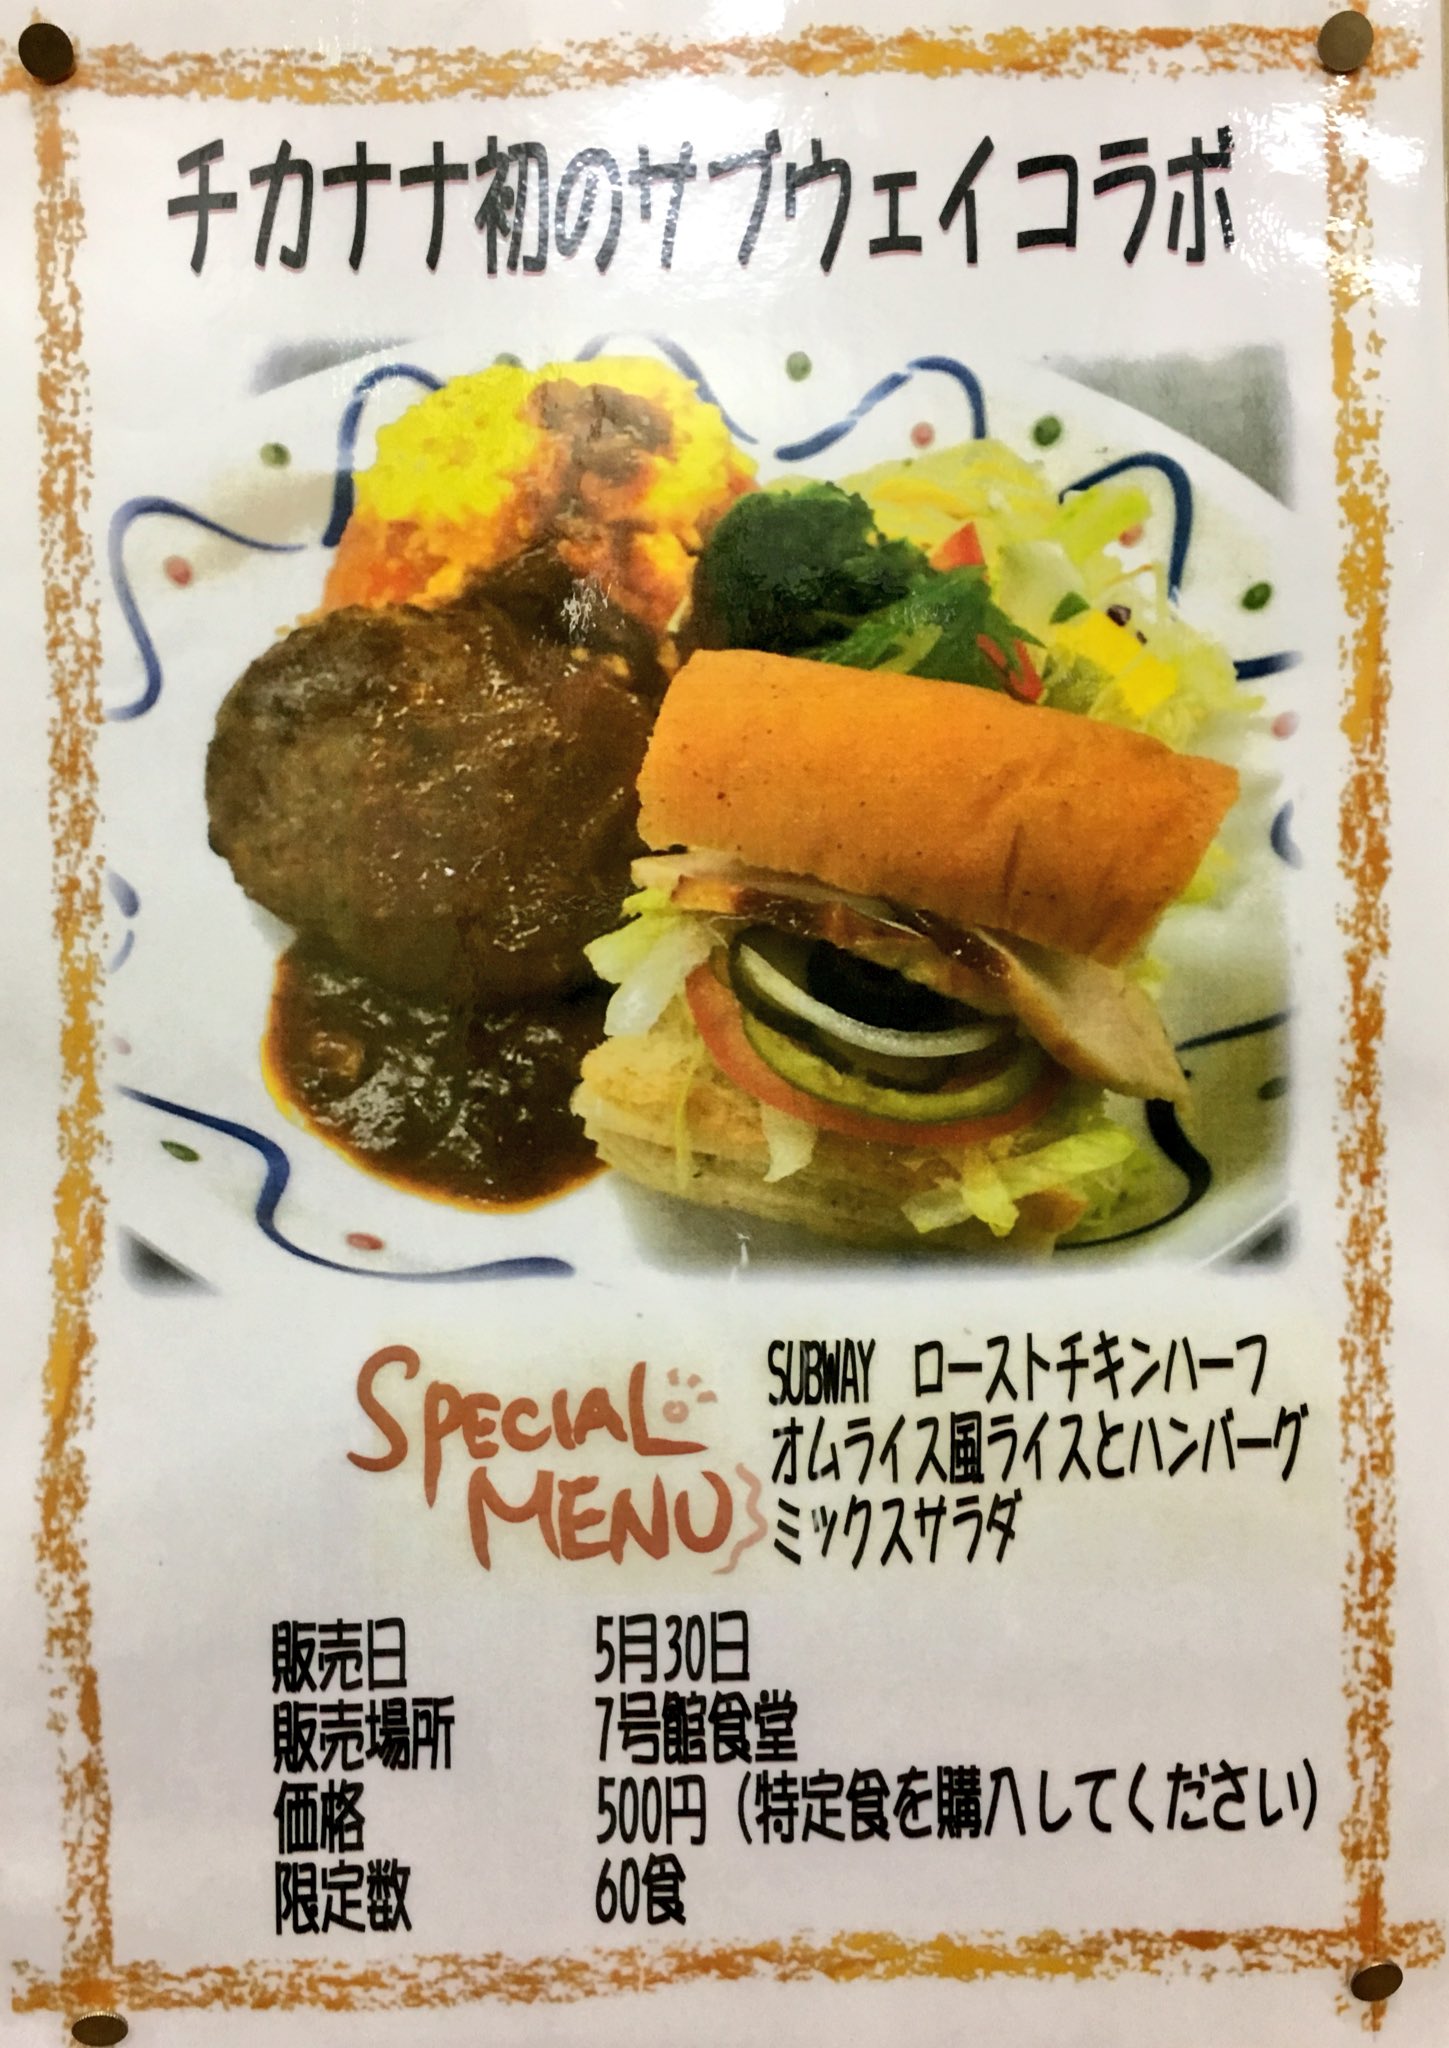 チカナナ初のサブウェイコラボ
SPECIAL
MENU
SUBWAY ローストチキンハーフ
オムライス風ライスとハンバーグ
ミックスサラダ
販売日 5月30日
販売場所 7号館食堂
価格 500円（特定食を購入してください）
限定数 60食